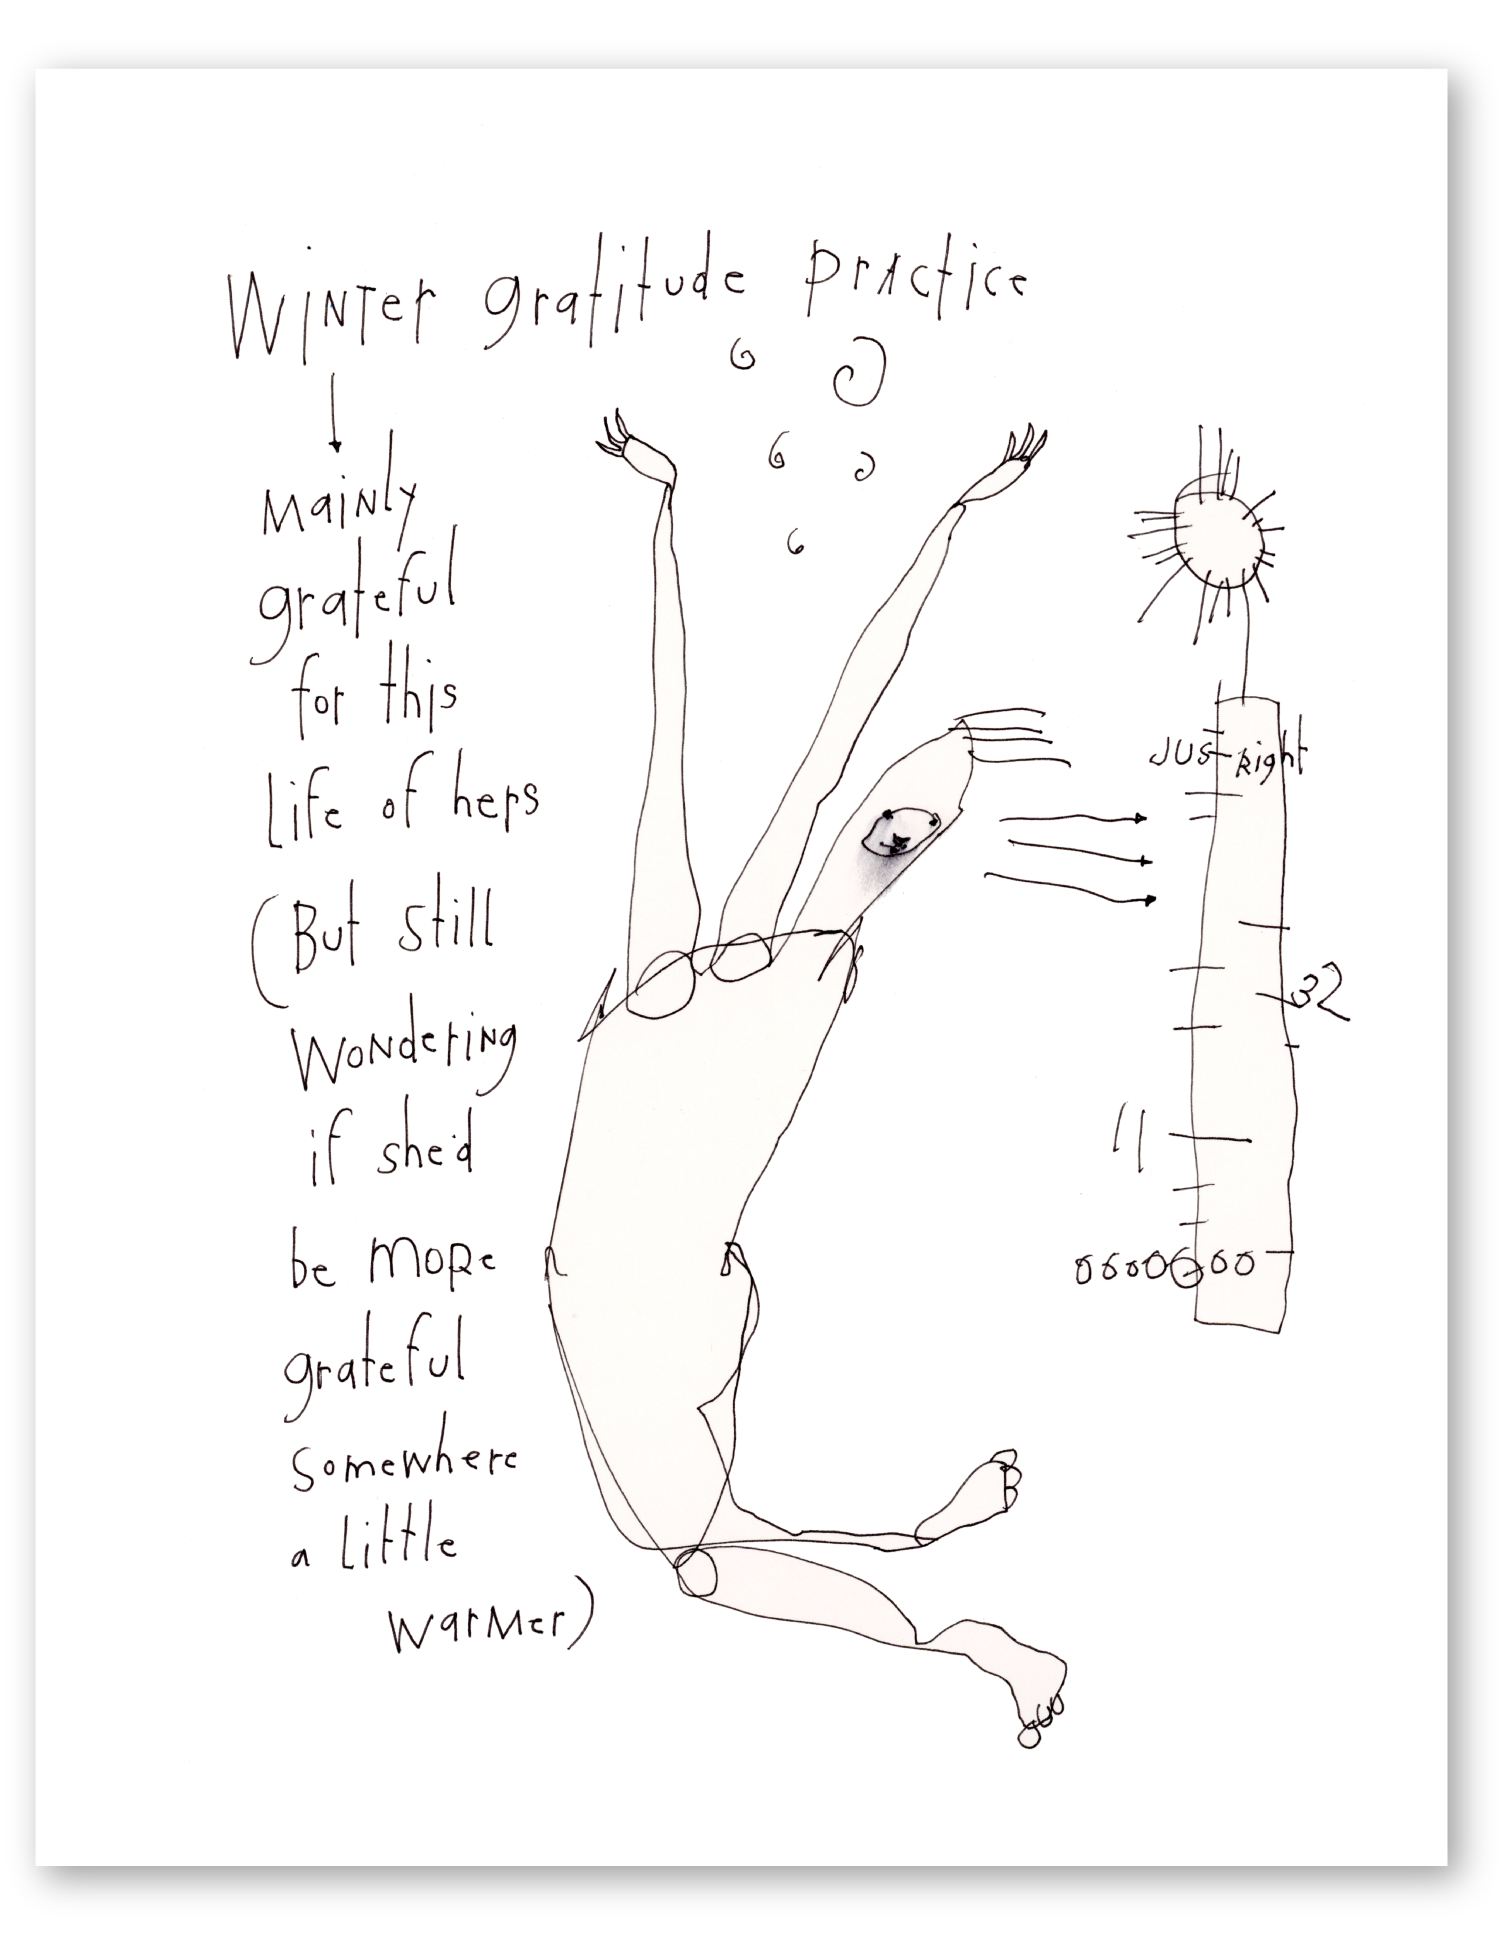 Winter gratitude practice
mainly
grateful
for this
life of hers
(But still
wondering
if she'd
be more
grateful
somewhere
a little
warmer)
JUST Right
32
11